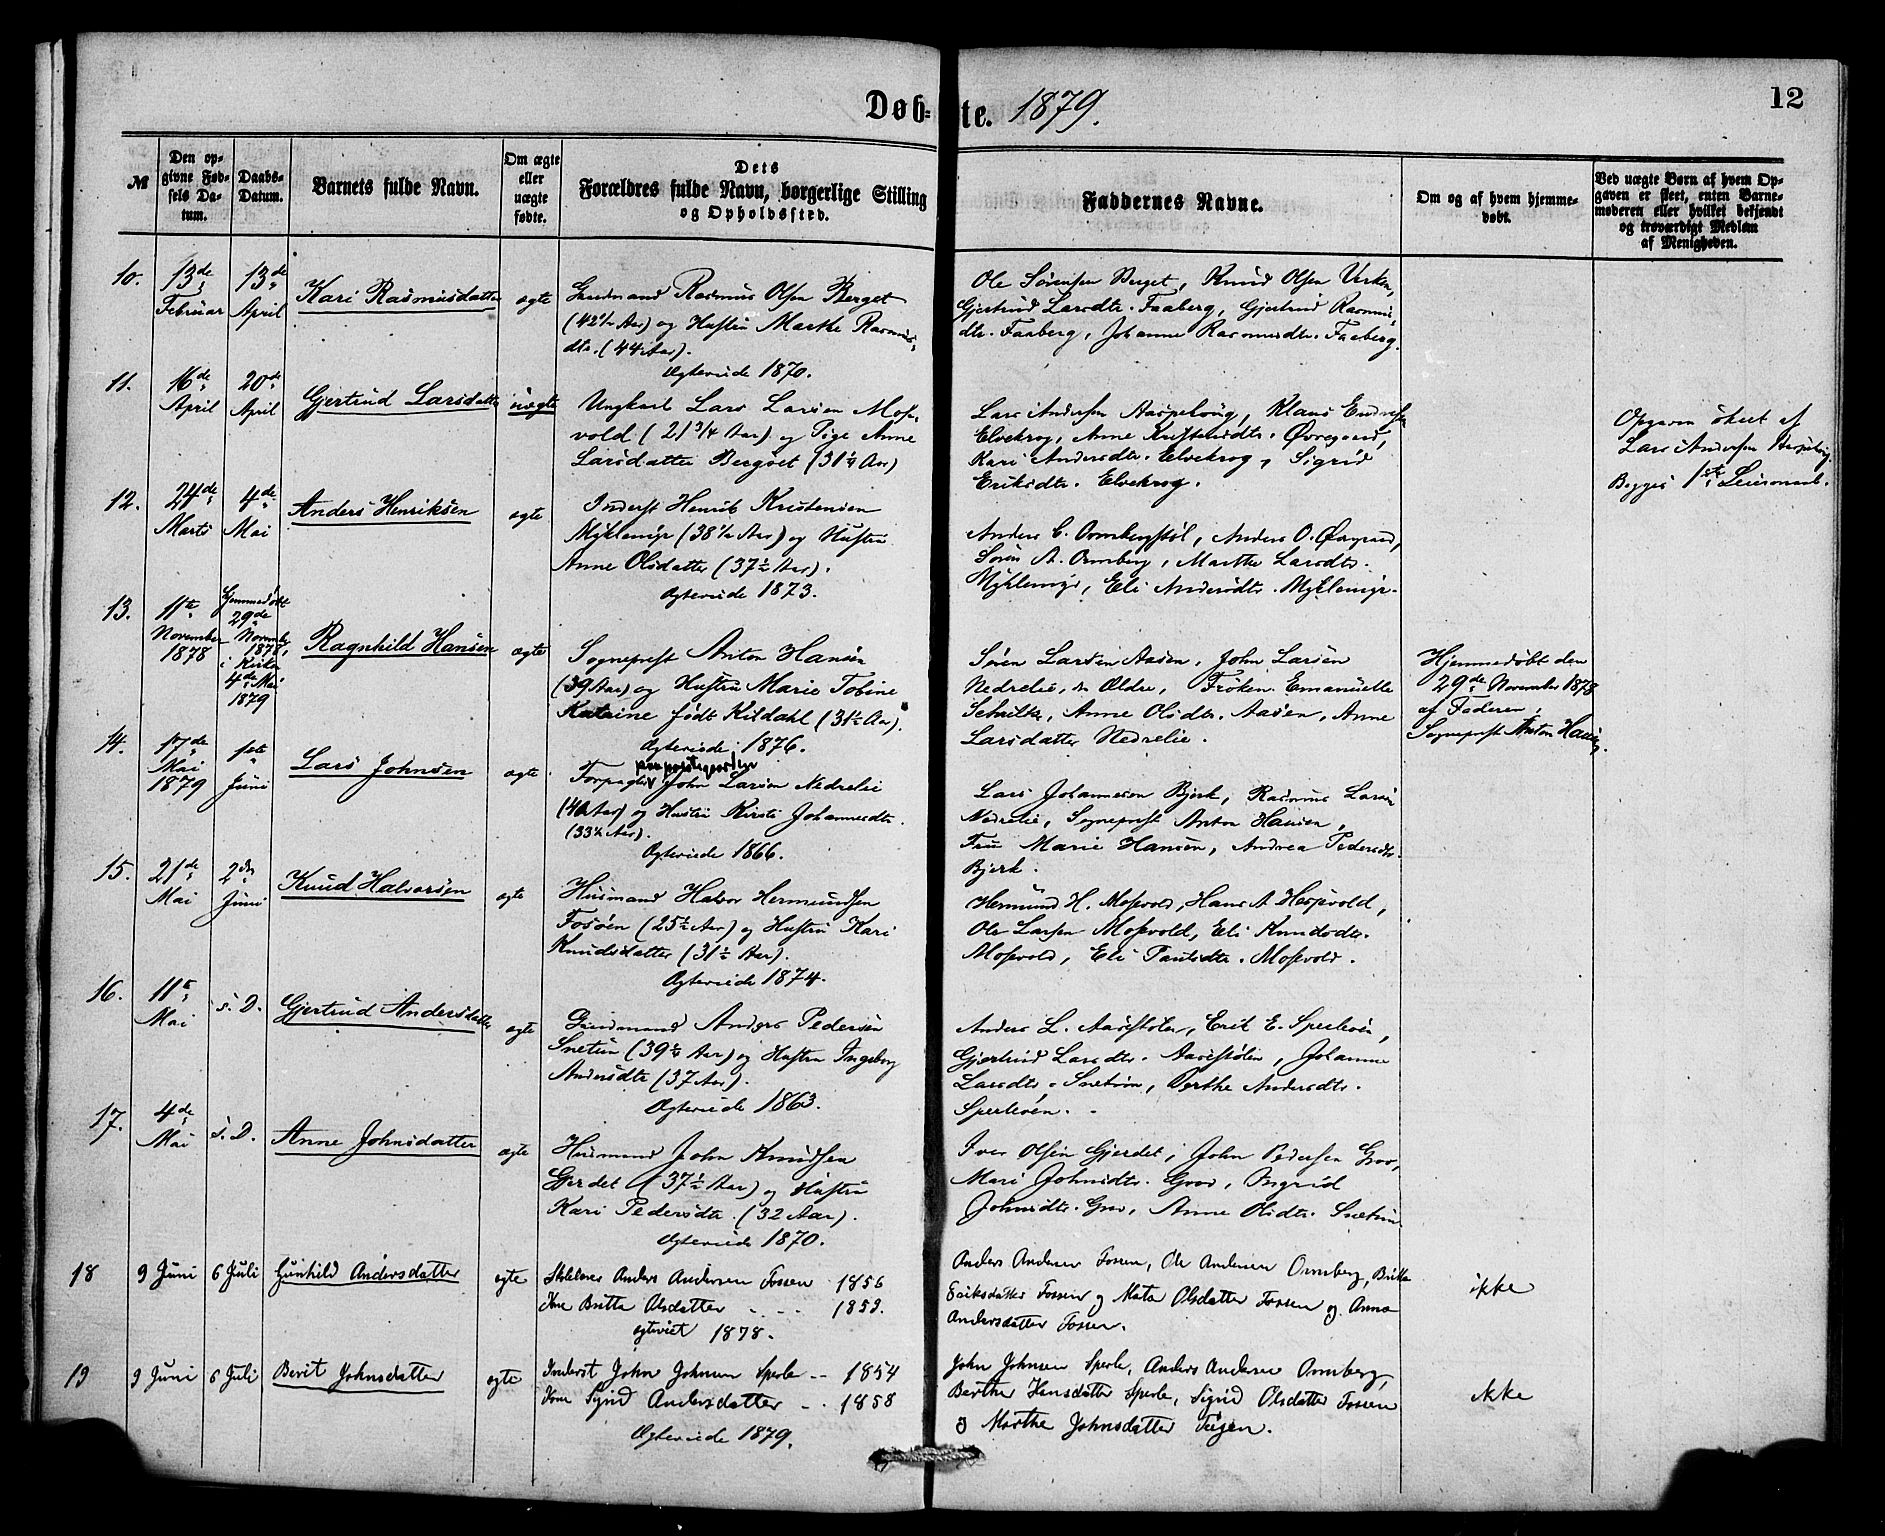 Døb-te. 1879.
12
№
Den opgivne Fødsels Datum.
Daabs-Datum.
Barnets fulde Navn.
Om ægte eller uægte født.
Dets Forældres fulde Navn, borgerlige Stilling og Opholdssted.
Faddernes Navne.
Om og af hvem hjemmedøbt.
Ved uægte Børn af hvem Opgaven er skeet, enten Barnemoderen eller hvilket bekjendt og troværdigt Medlem af Menigheden.
10. 13de Februar 13de April Kari Rasmusdatter ægte
Gaardmand Rasmus Olsen Berget
(42½ Aar) og Hustru Marthe Rasmus-
dtr. (44 Aar).
Ægteviede 1870.
Ole Sørensen Berget, Knud Olsen
Gjertrud Larsdtr. Faaberg, Gjertrud Rasmus-
dtr. Faaberg, Johanne Rasmusdtr. Faaberg.
11. 16de April 20de April Gjertrud Larsdatter uægte
Ungkarl Lars Larsen Mose-
vold (21 3/4 Aar) og Pige Anne
Larsdatter Bergset (31¼ Aar)
Lars Andersen Aaspeløug, Klaus Endresen
Elvekrog, Anne Kristensdtr. Øvregaard,
Kari Andersdtr. Elvekrog, Sigrid
Eriksdtr. Elvekrog.
Opgaven skeet af
Lars Andersen
Begges 1ste Leiermaal.
12. 24de Marts 4de Mai Anders Henriksen ægte
Inderst Henrik Kristensen
Myklemyr (38½ Aar) og Hustru
Anne Olsdatter (37½ Aar).
Ægteviede 1873.
Anders C. Ormbergstøl, Anders O. Øvregaard,
Søren A. Ormberg, Marthe Larsdtr.
Myklemyr, Eli Andersdtr. Myklemyr.
13. 11te November 1878 Hjemmedøbt 29de November 1878, i Kirken 4de Mai 1879 Ragnhild Hansen ægte
Sogneprest Anton Hansen
(39 Aar) og Hustru Marie Tobine
Katrine født Kildahl (31½ Aar).
Ægteviede 1876.
Søren Larsen Aasen, John Larsen
Nedrelie, d. Ældre, Frøken Emanuelle
Anne Olsdtr. Aasen, Anne
Larsdatter Nedrelie.
Hjemmedøbt den
29de November 1878
af Faderen,
Sogneprest Anton Hansen.
14. 17de Mai 1879 1ste Juni Lars Johnsen ægte
paa prestegaarden
Forpagter John Larsen Nedrelie
(40 Aar) og Hustru Kirsti Johannesdtr.
(33½ Aar).
Ægteviede 1866.
Lars Johannesen Bjerk, Rasmus Larsen
Nedrelie, Sogneprest Anton Hansen,
Fru Marie Hansen, Andrea Pedersdtr.
Bjerk.
15. 21de Mai 2den Juni Knud Halvorsen ægte
Husmand Halvor Hermundsen
Fossøen (25½ Aar) og Hustru Kari
Knudsdatter (31½ Aar).
Ægteviede 1874.
Hermund H. Mosevold, Hans A. Hespevold,
Ole Larsen Mosevold, Eli Knudsdtr.
Mosevold, Eli Paulsdtr. Mosevold.
16. 11te Mai s. D. Gjertrud Andersdatter ægte
Gaardmand Anders Pedersen
Snetun (39½ Aar) og Hustru Ingeborg
Andersdtr (37 Aar).
Ægteviede 1863.
Anders L. Aasestølen, Erik E. Sperleøen,
Gjertrud Larsdtr. Aasestølen, Johanne
Larsdtr. Snetun, Berthe Andersdtr.
Sperleøen.
17. 4de Mai s. D. Anne Johnsdatter ægte
Husmand John Knudsen
Gjerdet (37½ Aar) og Hustru
Kari Pedersdtr. (32 Aar).
Ægteviede 1870.
Iver Olsen Gjerdet, John Pedersen Grov,
Mari Johnsdtr. Grov, Ingrid
Johnsdtr. Grov, Anne Olsdtr. Snetun
18 9 Juni 6 Juli Gunhild Andersdatter ægte
Skolelærer Anders Andersen Fossen 1856
Kone Britta Olsdatter 1859.
ægteviet 1878.
Anders Andersen Fossen, Ole Andersen Ormberg, Britta
Eriksdatter Fossen og Marta Olsdatter Fossen og Anna
Andersdatter Fossen.
ikke
19 9 Juni 6 Juli Berit Johnsdatter ægte
Inderst John Johnsen Sperle 1854
Kone Sigrid Andersdatter 1858
Ægteviede 1879.
John Johnsen Sperle, Anders Andersen Ormberg,
Berthe Hansdatter Sperle, Sigrid Olsdatter Fossen
og Marthe Johnsdatter Teigen.
ikke